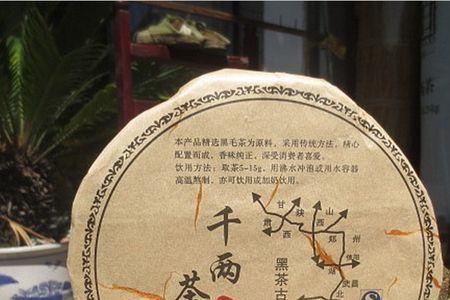 本产品精选黑毛茶为原料，采用传统方法，精心
配置而成，香味纯正，深受消费者喜爱。
饮用方法：取茶5-15g，用沸水冲泡或用水容器
高温熬制，亦可饮用或加奶饮用。
千两茶
黑茶古
甘
陕
山
西
西
郑州
信阳
湖北
武昌